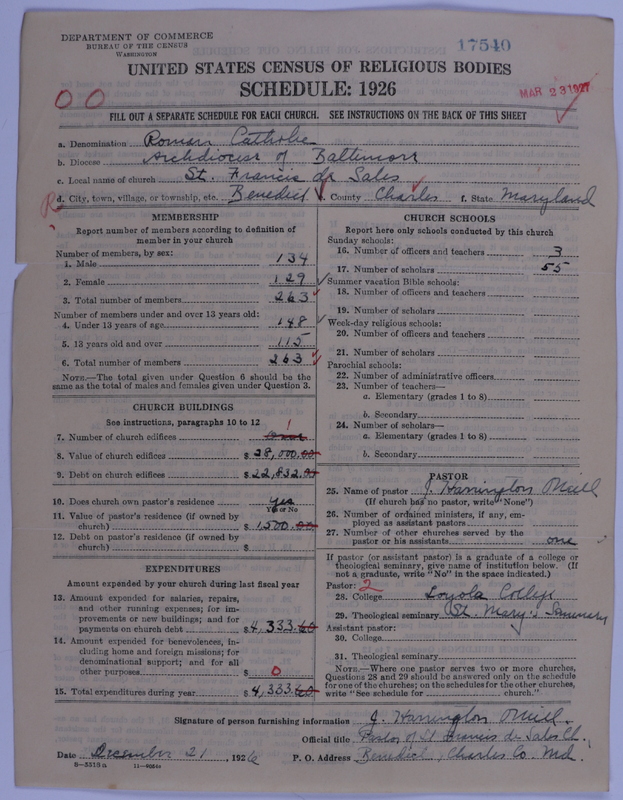 DEPARTMENT OF COMMERCE
BUREAU OF THE CENSUS
WASHINGTON
17540
UNITED STATES CENSUS OF RELIGIOUS BODIES
SCHEDULE: 1926
MAR 23 1927
0 0
FILL OUT A SEPARATE SCHEDULE FOR EACH CHURCH. SEE INSTRUCTIONS ON THE BACK OF THIS SHEET
a. Denomination Roman Catholic
b. Diocese Archdiocese of Baltimore
c. Local name of church St. Francis de Sales
d. City, town, village, or township, etc. Benedict e. County Charles f. State Maryland
MEMBERSHIP
Report number of members according to definition of
member in your church
Number of members, by sex:
1. Male 134
2. Female 129
3. Total number of members 263
Number of members under and over 13 years old:
4. Under 13 years of age 148
5. 13 years old and over 115
6. Total number of members 263
NOTE.—The total given under Question 6 should be the
same as the total of males and females given under Question 3.
CHURCH BUILDINGS
See instructions, paragraphs 10 to 12
7. Number of church edifices 1
8. Value of church edifices $28,000.00
9. Debt on church edifices $22,832.00
10. Does church own pastor's residence yes
Yes or No
11. Value of pastor's residence (if owned by
church) $1500.00
12. Debt on pastor's residence (if owned by
church) $
EXPENDITURES
Amount expended by your church during last fiscal year
13. Amount expended for salaries, repairs,
and other running expenses; for im-
provements or new buildings; and for
payments on church debt $4,333.60
14. Amount expended for benevolences, in-
cluding home and foreign missions; for
denominational support; and for all
other purposes $ 0
15. Total expenditures during year $4,333.60
CHURCH SCHOOLS
Report here only schools conducted by this church
Sunday schools:
16. Number of officers and teachers 3
17. Number of scholars 55
Summer vacation Bible schools:
18. Number of officers and teachers
19. Number of scholars
Week-day religious schools:
20. Number of officers and teachers
21. Number of scholars
Parochial schools:
22. Number of administrative officers
23. Number of teachers—
a. Elementary (grades 1 to 8)
b. Secondary
24. Number of scholars—
a. Elementary (grades 1 to 8)
b. Secondary
PASTOR
25. Name of pastor J. Harrington O'Neill
(If church has no pastor, write "None")
26. Number of ordained ministers, if any, em-
ployed as assistant pastors
27. Number of other churches served by the
pastor or his assistants one
If pastor (or assistant pastor) is a graduate of a college or
theological seminary, give name of institution below. (If
not a graduate, write "No" in the space indicated.)
Pastor: 2
28. College Loyola College
29. Theological seminary St. Mary's Seminary
Assistant pastor:
30. College
31. Theological seminary
NOTE.—Where one pastor serves two or more churches,
Questions 28 and 29 should be answered only on the schedule
for one of the churches; on the schedules for the other churches,
write "See schedule for church."
Signature of person furnishing information J. Harrington O'Neill.
Official title Pastor of St Francis de Sales Ch.
Date December 21, 1926 P. O. Address Benedict, Charles Co. Md.
8-5319 a 11-9056a